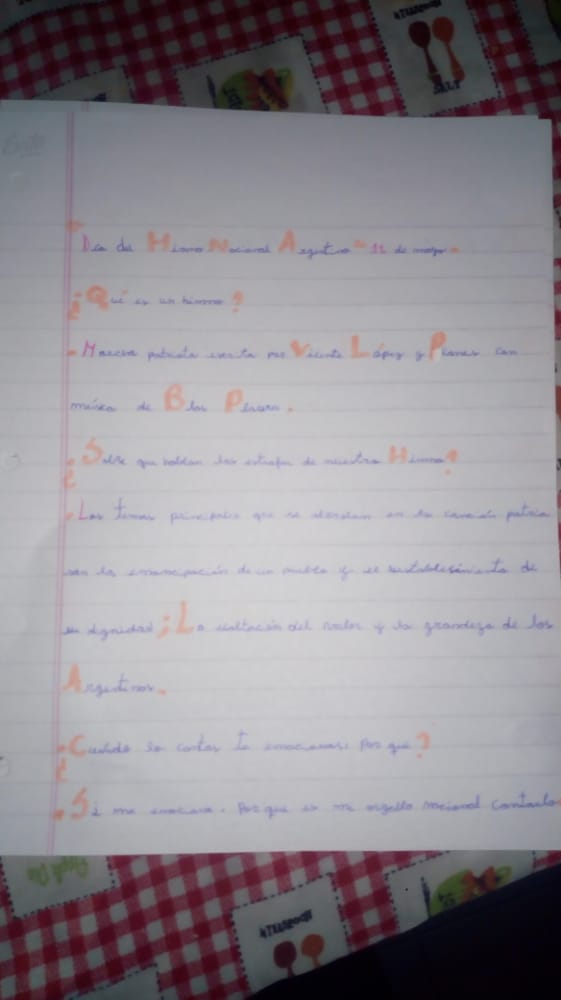 Éxito
Día del Himno Nacional Argentino - 11 de mayo -
¿Qué es un himno?
- Marcha patriota escrita por Vicente López y Planes con
música de Blas Parera.
¿Sobre que hablan las estrofas de nuestro Himno?
- Los temas principales que se abordan en la canción patria
son la emancipación de un pueblo y el restablecimiento de
su dignidad; La exaltación del valor y la grandeza de los
Argentinos.
¿Cuándo lo cantas te emocionas? Por que?
- Si me emociona. Por que es mi orgullo nacional cantarlo
¼ TEASPOON
SALT
¼ TEASPOON